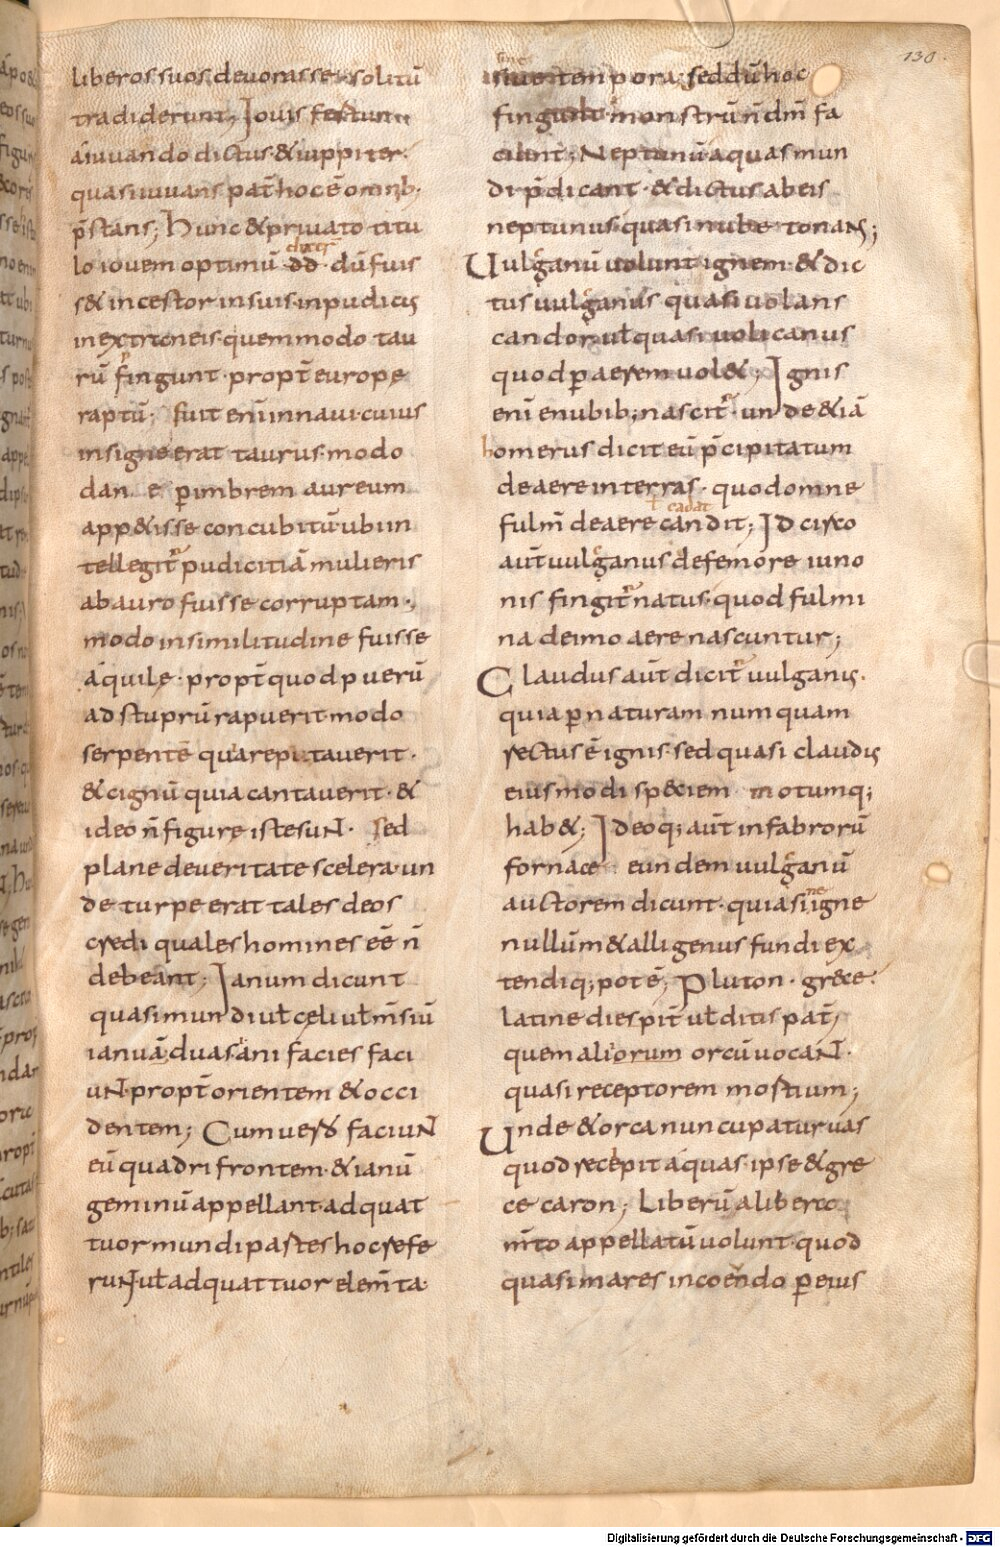 130.
liberos suos devorasse solitū
tradiderunt; Iovis fertur
a iuvando dictus & iuppiter.
quasi iuvans pat̄ hoc ē omnib.
p̄stans; Hunc & privato titu
lo iovem optimū dū fuis
s& incestor in suis inpudicis
in extraneis quem modo tau
rū fingunt propt̄ europe
raptū; fuit enī in navi cuius
insigne erat taurus modo
danę p imbrem aureum
app&isse concubitū ubi in
tellegit̄ pudicitiā mulieris
ab auro fuisse corruptam.
modo in similitudine fuisse
aquilę propt̄ quod puerū
ad stuprū rapuerit modo
serpentē quia reptaverit.
& cignū quia cantaverit. &
ideo n̄ figurę iste suN. Sed
plane de veritate scelera. un
de turpe erat tales deos
credi quales homines ēē n̄
debeant; Ianum dicunt
quasi mundi ut̄ cęli ut̄ m̄siū
ianuā duas ani facies faci
uN. propt̄ orientem & occi
dentem; Cum vero faciuN
eū quadrifrontem & ianū
geminū appellant ad quat
tuor mundi partes hoc refe
ruN ut̄ ad quattuor elem̄ta.
sine
sive tempora; sed dū hoc
fingunt monstrū n̄ dm̄ fa
ciunt; Neptunū aquas mun
di p̄dicant. & dictus ab eis
neptunus quasi nube tonaNs;
Vulganū volunt ignem & dic
tus vulganus quasi volans
candor ut̄ quasi volicanus
quod p aerem vol&; Ignis
enī e nubib; nascit̄. unde & iā
homerus dicit eū p̄cipitatum
de aere in terras. quod omne
cadat
fulm̄ de aere candit; Idcirco
aut̄ vulganus de femore iuno
nis fingit̄ natus. quod fulmi
na de imo aere nascuntur;
Claudus aut̄ dicit̄ vulganus.
quia p naturam numquam
rectus ē ignis. sed quasi claudus
eiusmodi sp&iem motumq;
hab&; Ideoq; aut̄ in fabrorū
fornace eundem vulganū
ne
auctorem dicunt. quia si igne
nullum & alli genus fundi ex
tendiq; pot ē; Pluton. grece.
latine diespit̄ ut̄ ditis pat̄;
quem alii orcum orcū vocaN.
quasi receptorem mortium;
Unde & orca nuncupatur vas
quod recepit aquas. ipse & gre
ce caron; Liberū a liberto
m̄to appellatū volunt. quod
quasi mares in coeūdo p eius
Digitalisierung gefördert durch die Deutsche Forschungsgemeinschaft - DFG